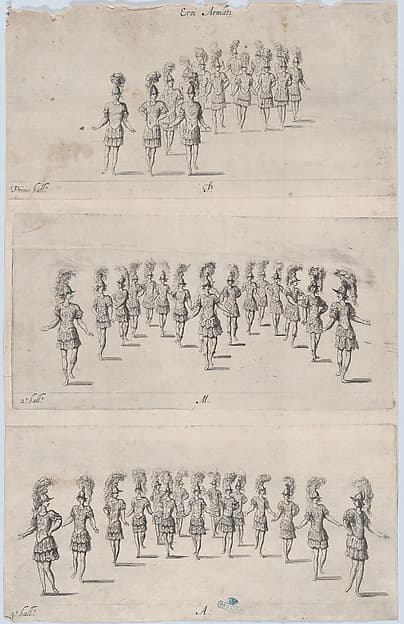 Eroi Armati
Primo ball.º
2.º ball.º
M.
3.º ball.º
A.